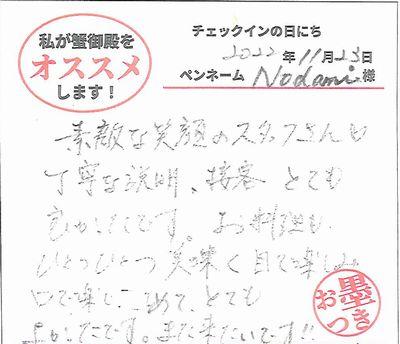 私が蟹御殿を
オススメ
します！
チェックインの日にち
2022年11月23日
ペンネーム Nodami 様
素敵な笑顔のスタッフさんも
丁寧な説明、接客とても
良かったです。お料理も
ひとつひとつ美味く目で楽しみ
口で楽しこめて、とても
よかったです。また来たいです!!
お墨つき